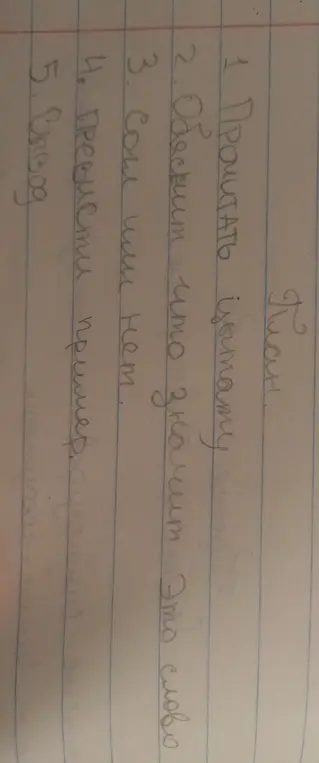 План.
1 Прочитать цытату
2. Обяснит что значит это слово
3. Согл или нет.
4. превисти пример.
5. Вывод